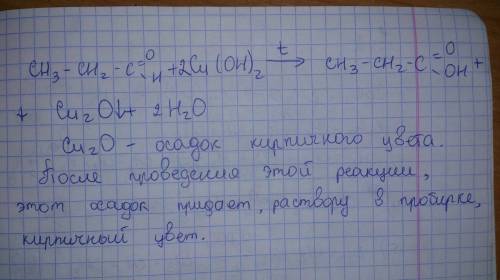 CH₃-CH₂-C(=O)-H + 2Cu(OH)₂ —t→ CH₃-CH₂-C(=O)-OH +
+ Cu₂O↓ + 2H₂O
Cu₂O - осадок кирпичного цвета.
После проведения этой реакции,
этот осадок придает, раствору в пробирке,
кирпичный цвет.